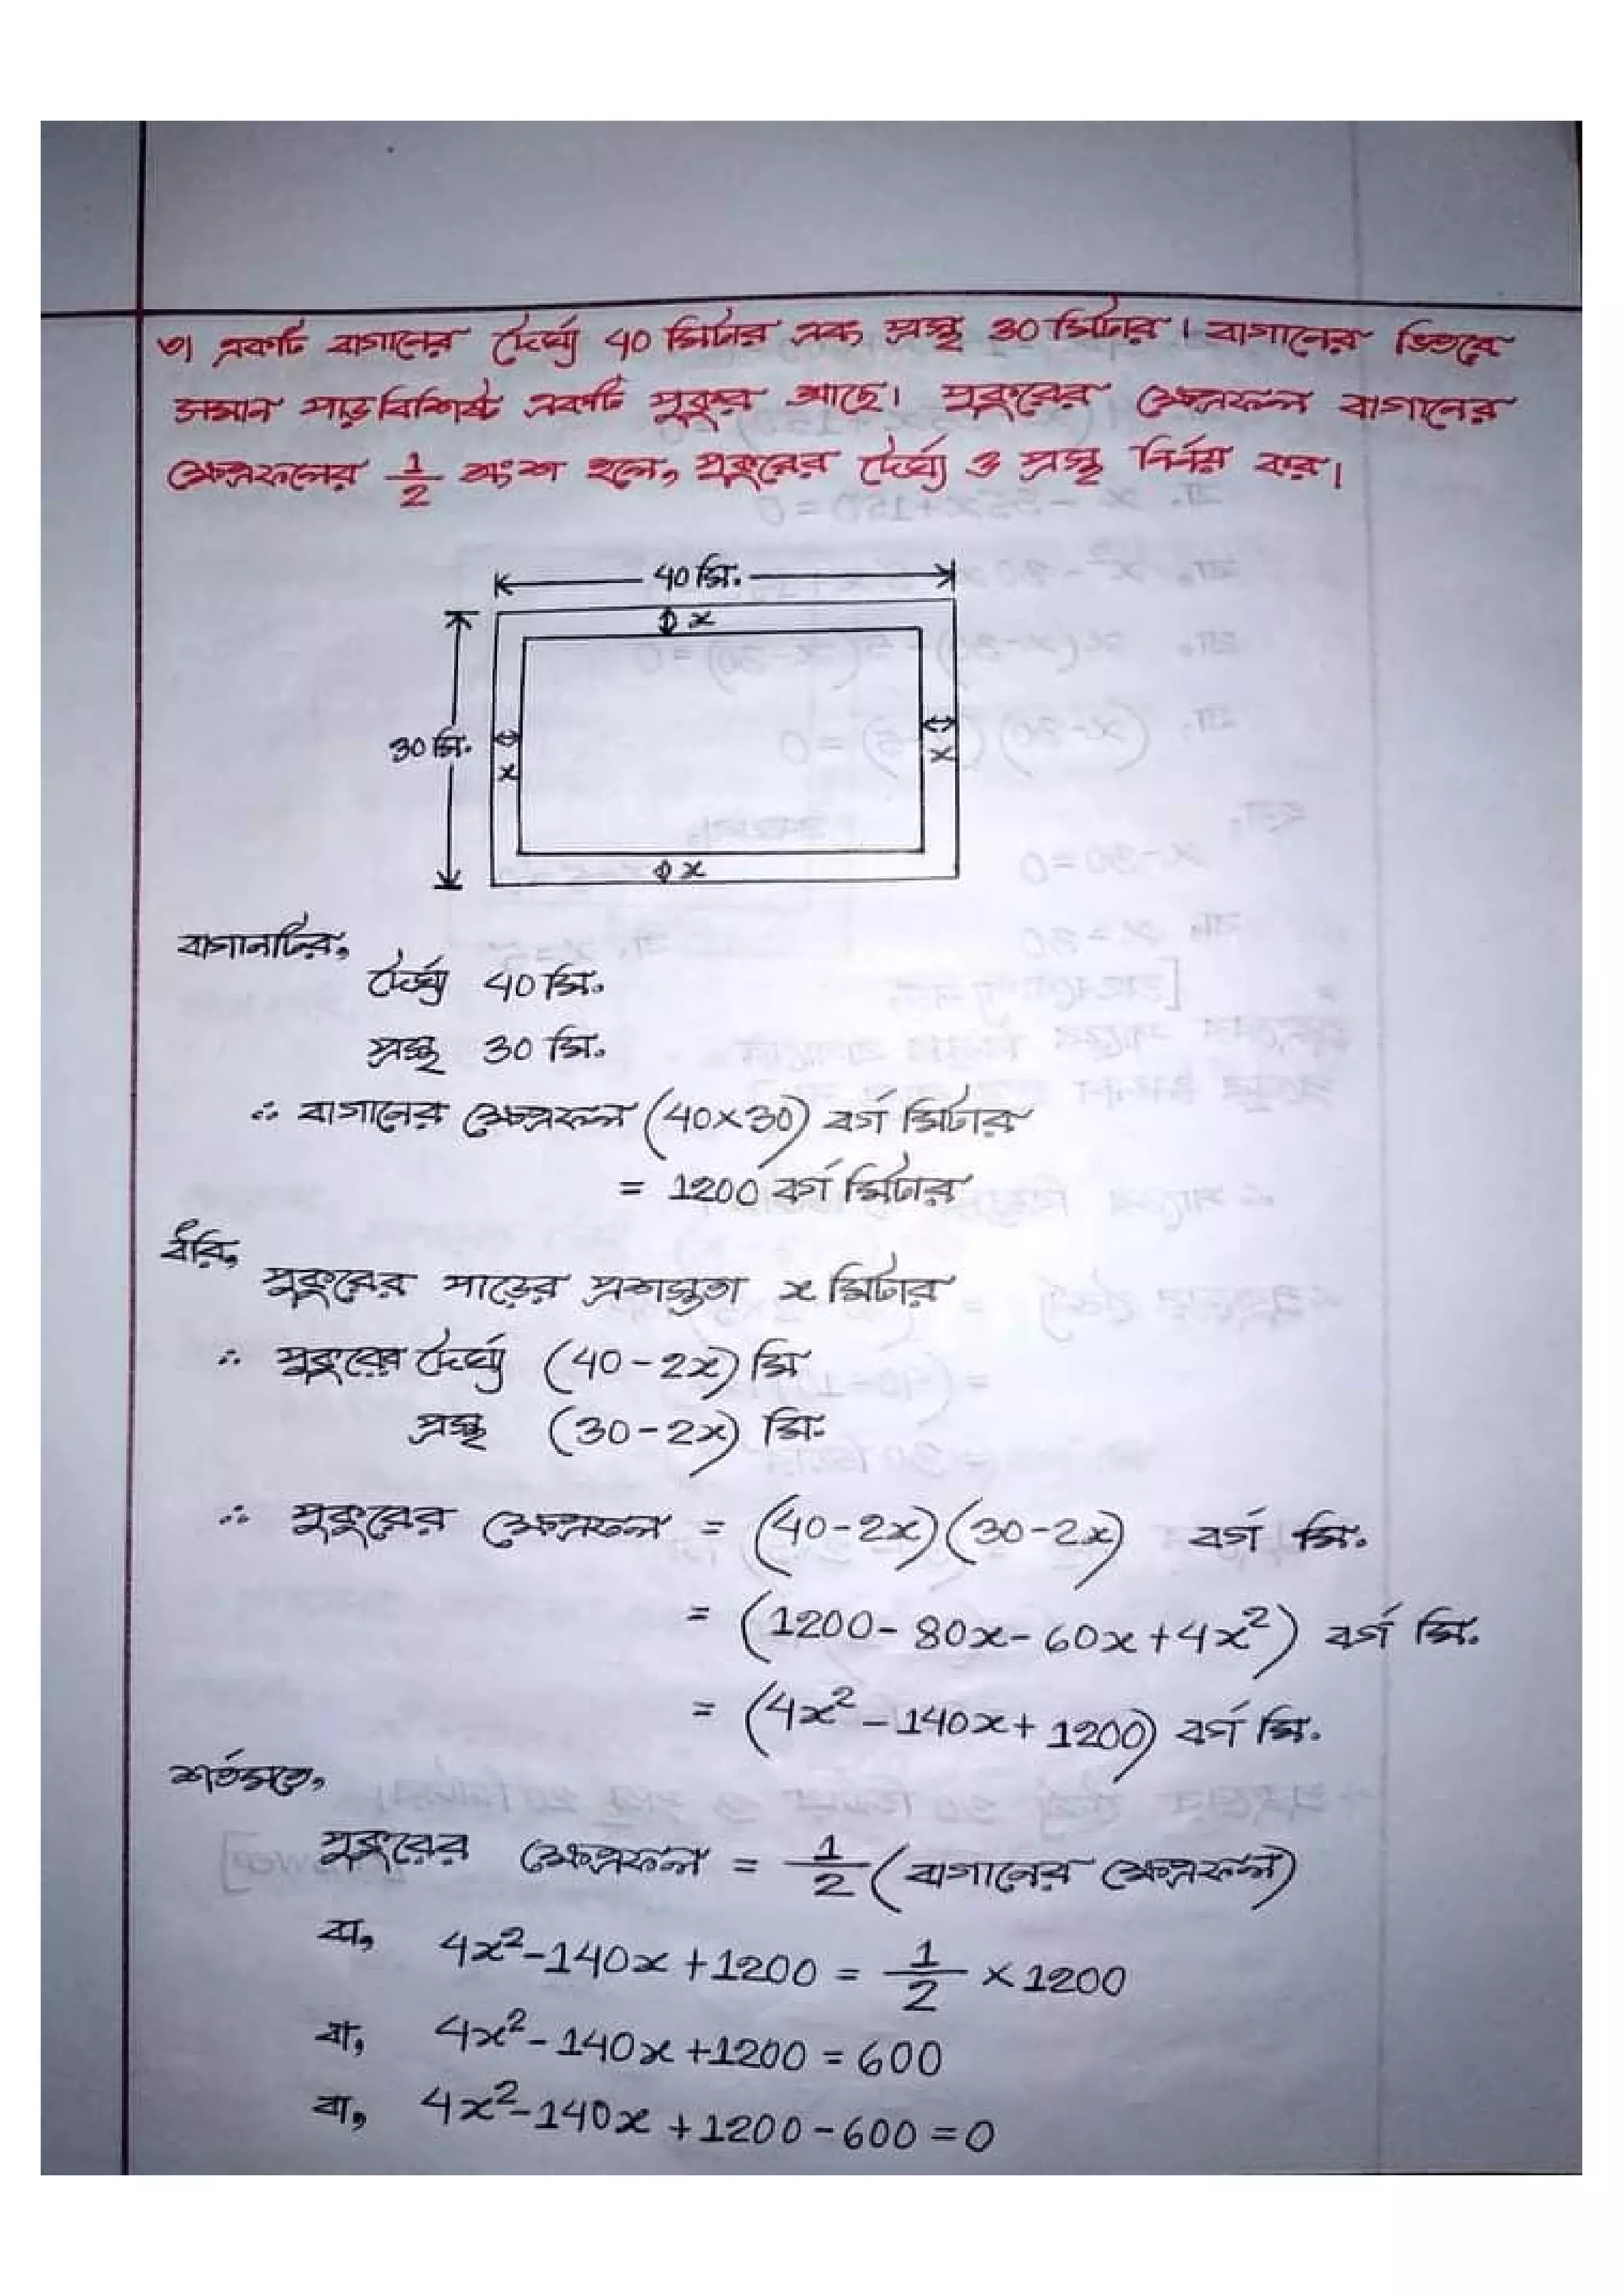 ৩। একটি বাগানের দৈর্ঘ্য 40 মিটার এবং প্রস্থ 30 মিটার । বাগানের ভিতরে
সমান পাড় বিশিষ্ট একটি পুকুর আছে। পুকুরের ক্ষেত্রফল বাগানের
ক্ষেত্রফলের 1/2 অংশ হলে, পুকুরের দৈর্ঘ্য ও প্রস্থ নির্ণয় কর।
40 মি.
x
30 মি.
x
x
x
বাগানটির,
দৈর্ঘ্য 40 মি.
প্রস্থ 30 মি.
∴ বাগানের ক্ষেত্রফল (40×30) বর্গ মিটার
= 1200 বর্গ মিটার
ধরি,
পুকুরের পাড়ের প্রশস্ততা x মিটার
∴ পুকুরের দৈর্ঘ্য (40-2x) মি
প্রস্থ (30-2x) মি.
∴ পুকুরের ক্ষেত্রফল = (40-2x)(30-2x) বর্গ মি.
= (1200-80x-60x+4x²) বর্গ মি.
= (4x²-140x+1200) বর্গ মি.
শর্তমতে,
পুকুরের ক্ষেত্রফল = 1/2 (বাগানের ক্ষেত্রফল)
বা, 4x²-140x+1200 = 1/2 × 1200
বা, 4x²-140x+1200 = 600
বা, 4x²-140x+1200-600 = 0